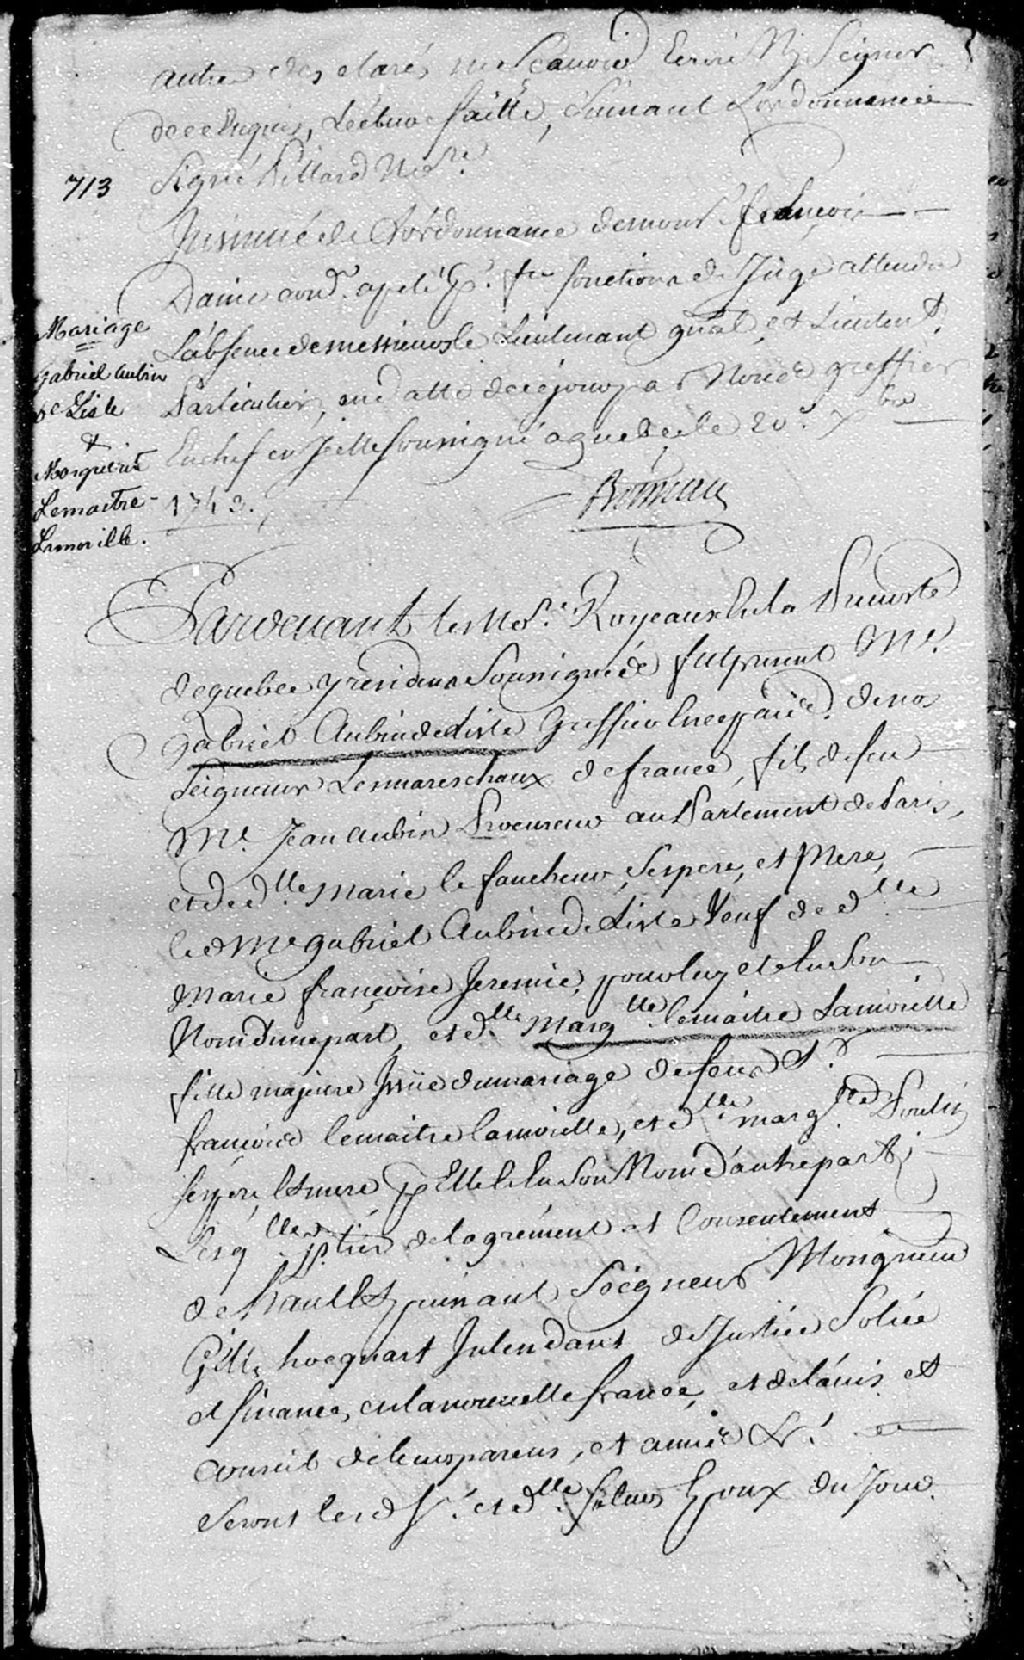 autre des clarés ne Scauoir Ecrire Ny Signer
de ce Enquis, Lecture faitte, Suivant L'ordonnance
Signé Pillard No.re
713
Insinué de L'ordonnance de mons.r françois
Daine cons.er fonctions de Juge attendu
L'absence de messieurs le Lieutenant gñal, et Lieuten.t
Particulier, en datte de ce jour par Nous greffier
En chef en Icelle soussigné a quebec le 20.e Xbre
1743.
Boisseau
Mariage
Gabriel Aubin
De Lisle
&
Marguerite
Lemaitre
Lamorille.
Pardevant les No.res Royeaux En la Prevosté
de quebec y residens Soussignéz fut present M.e
Gabriel Aubin de Lisle Greffier En ce païs de nos
Seigneurs Les mareschaux de france, fils de feu
M.e Jean Aubin Procureur au Parlement de Paris,
et de d.lle Marie le faucheur, Ses pere, et Mere,
led M.e Gabriel Aubin De Lisle Veuf de d.lle
Marie françoise Jeremie, pour luy et En Son
Nom d'une part, et d.lle Marg.tte Lemaitre Lamorille
fille majeure Issüe du mariage de feus S.r
françois lemaitre lamorille, et d.lle marg.te Poulin
ses pere, et mere p Elle et En Son Nom d'autre part;
Lesq.lles ptïes de l'agrément et Consentement
de haut et puissant Seigneur Monseigneur
Gille hocquart Intendant de Justice Police
et finance, en la nouvelle france, et de l'avis et
conseil de leurs parens, et amis
Seront lesd S.r et d.lle futurs Epoux du Jour